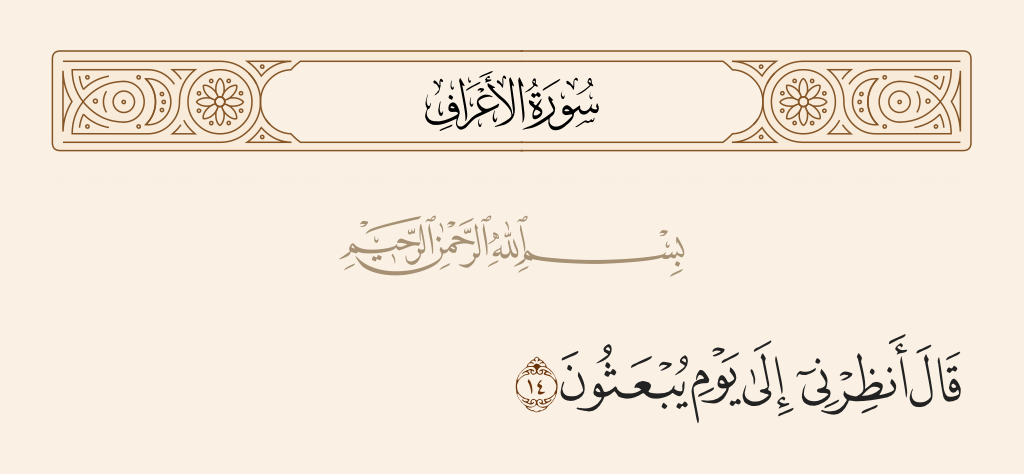 سُورَةُ الأَعْرَافِ
بِسْمِ ٱللَّهِ ٱلرَّحْمَٰنِ ٱلرَّحِيمِ
قَالَ أَنظِرْنِىٓ إِلَىٰ يَوْمِ يُبْعَثُونَ ١٤